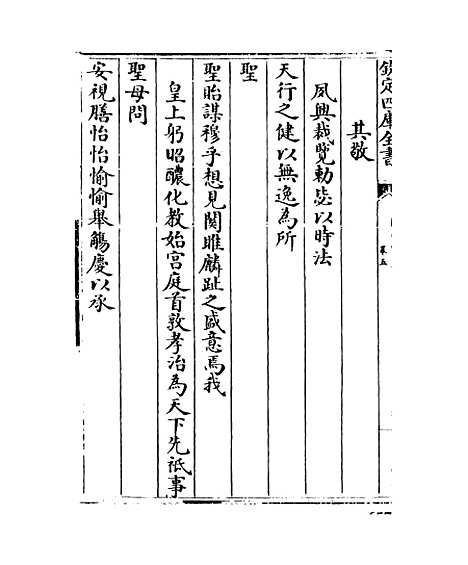 欽定四庫全書
卷五
其敬
夙興裁覽勅毖以時法
天行之健以無逸為所
聖
聖貽謀穆乎想見関雎麟趾之盛意焉我
皇上躬昭醲化教始宫庭首敦孝治為天下先祗事
聖母問
安視膳怡怡愉愉舉觴慶以承